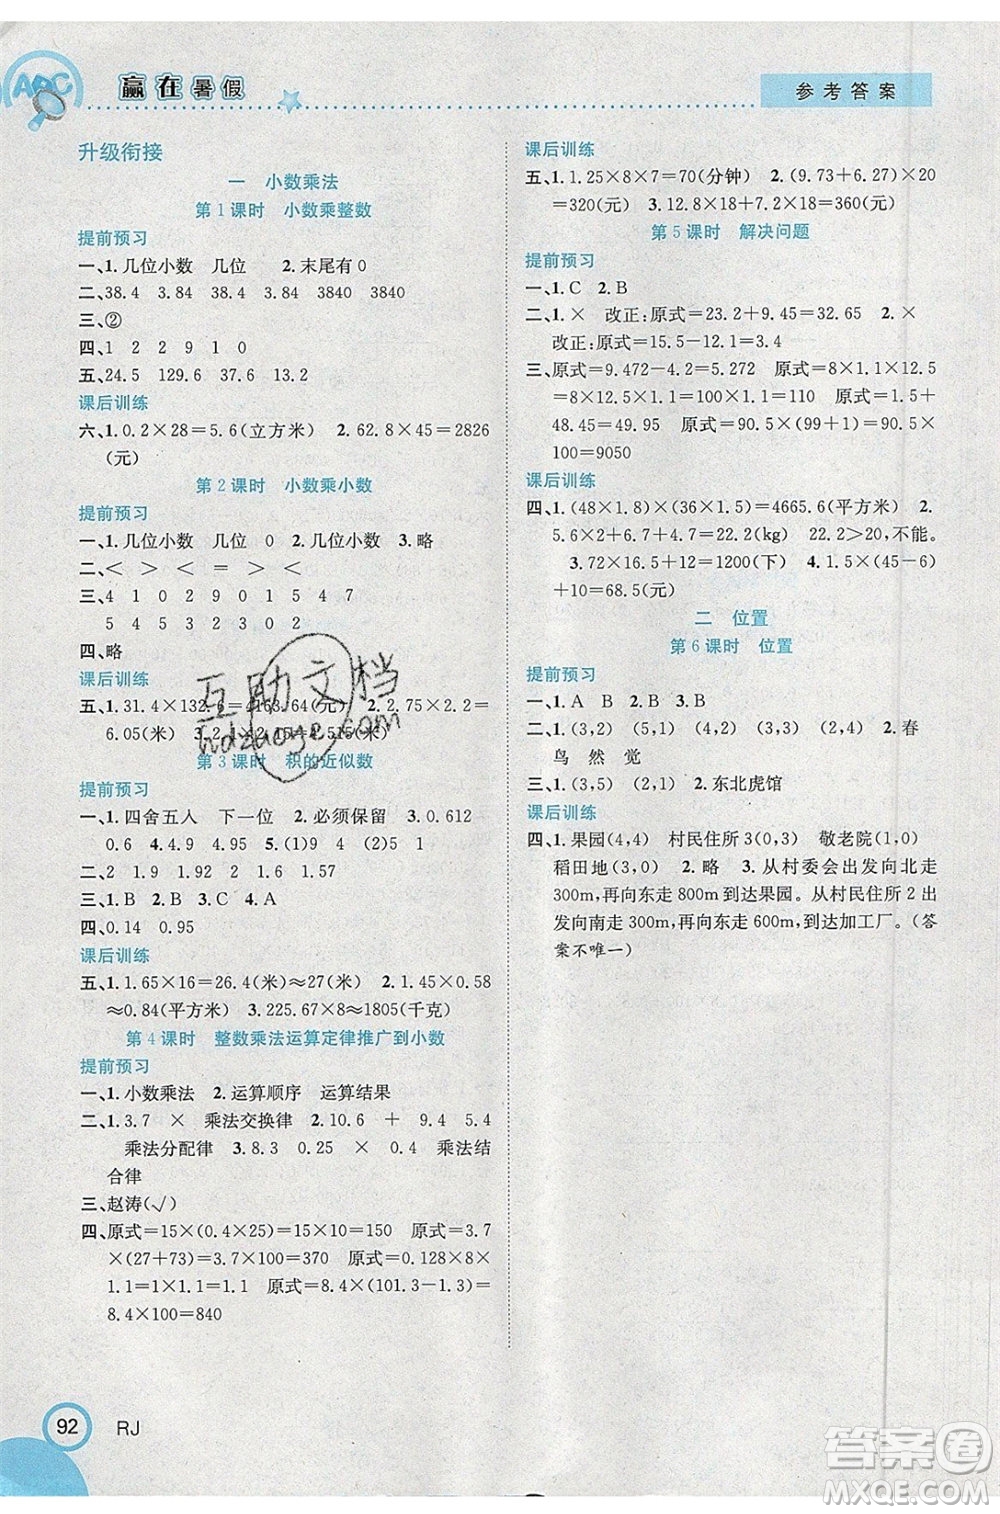 ABC
赢在暑假
参考答案
升级衔接
一 小数乘法
第1课时 小数乘整数
提前预习
一、1.几位小数 几位 2.末尾有0
二、38.4 3.84 38.4 3.84 3840 3840
三、②
四、1 2 2 9 1 0
五、24.5 129.6 37.6 13.2
课后训练
六、1.0.2×28=5.6(立方米) 2.62.8×45=2826
(元)
第2课时 小数乘小数
提前预习
一、1.几位小数 几位 0 2.几位小数 3.略
二、< > < > > <
三、4 1 0 2 9 0 1 5 4 7
5 4 5 3 2 3 0 2
四、略
课后训练
五、1.31.4×132.6=4163.64(元) 2.2.75×2.2=
6.05(米) 3.2×2.15=
第3课时 积的近似数
提前预习
一、1.四舍五人 下一位 2.必须保留 3.0.612
0.6 4.9.85 5.(1)9 (2)4
二、2 1.9 1.88 2 1.6 1.57
三、1.B 2.B 3.C 4.A
四、0.14 0.95
课后训练
五、1.1.65×16=26.4(米)≈27(米) 2.1.45×0.58
≈0.84(平方米) 3.225.67×8≈1805(千克)
第4课时 整数乘法运算定律推广到小数
提前预习
一、1.小数乘法 2.运算顺序 运算结果
二、1.3.7 × 乘法交换律 2.10.6 + 9.4 5.4
乘法分配律 3.8.3 0.25 × × 乘法结
合律
三、赵涛(√)
四、原式=15×(0.4×25)=15×10=150 原式=3.7
×(27+73)=3.7×100=370 原式=0.128×8×
1.1=1×1.1=1.1 原式=8.4×(101.3-1.3)=
8.4×100=840
课后训练
五、1.1.25×8×7=70(分钟) 2.(9.73+6.27)×20
=320(元) 3.12.8×18+7.2×18=360(元)
第5课时 解决问题
提前预习
一、1.C 2.B
二、1.× 改正:原式=23.2+9.45=32.65 2.×
改正:原式=15.5-12.1=3.4
三、原式=9.472-4.2=5.272 原式=8×11×12.5
=8×12.5×11=100×11=1100 原式=1.5+
48.45=49.95 原式=90.5×(99+1)=90.5×
100=9050
课后训练
四、1.(48×1.8)×(36×1.5)=4665.6(平方米) 2.
5.6×2+6.3+4.7=22.2(kg) 22.2>20,不能。
3.72×16.5+12=1200(下) 4.1.5×(45-6)
+10=68.5(元)
二 位置
第6课时 位置
提前预习
一、1.A B 2.B 3.B
二、1.(1,3) (5,1) (4,2) (3,2) (2,4) 2.春
鸟 然 觉
三、1.(3,5) (2,1) 2.东北虎馆
课后训练
四、1.果园(4,4) 村民住所3(0,3) 敬老院(1,0)
稻田地(3,0) 2.略 3.从村委会出发向北走
300m,再向东走800m到达果园。从村民住所2出
发向南走300m,再向东走600m,到达加工厂。(答
案不唯一)
互助文档
hdzuoye.com
92
RJ
答案卷
MXQE.COM